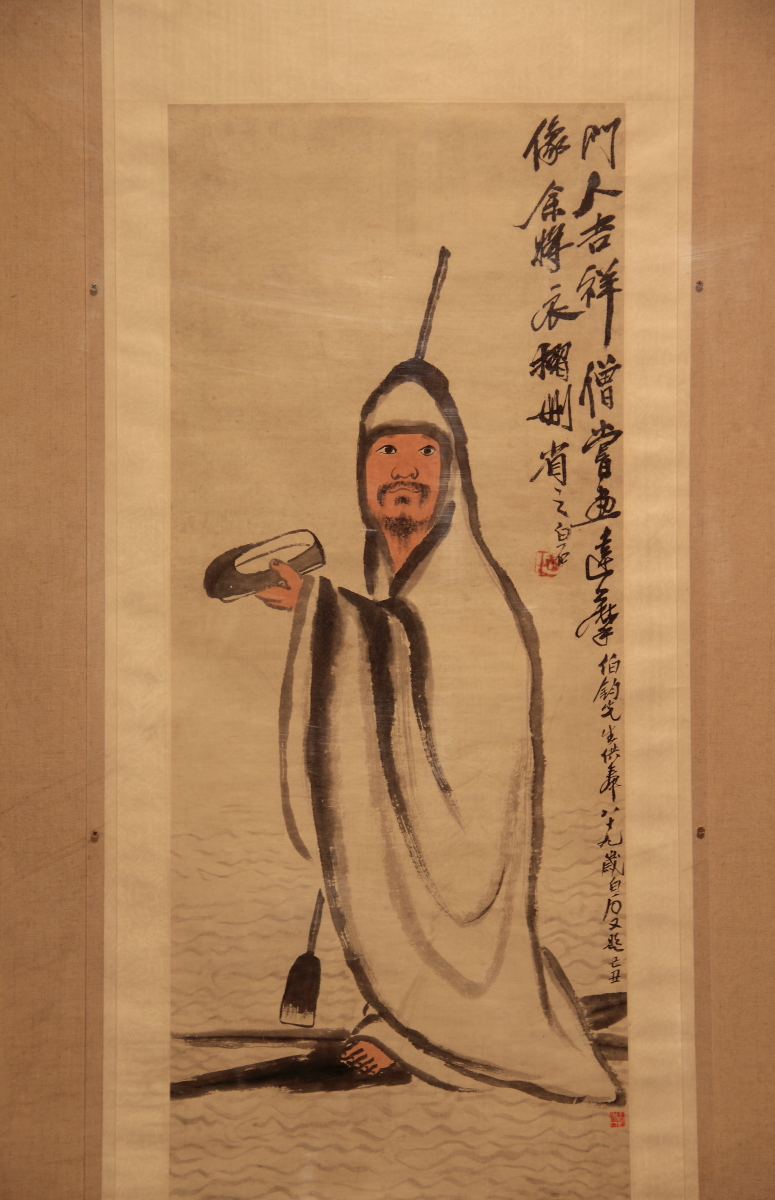 門人吉祥僧嘗畫達摩
像余將衣褶刪省之白石
伯鈞先生供奉八十九歲白石又題己丑